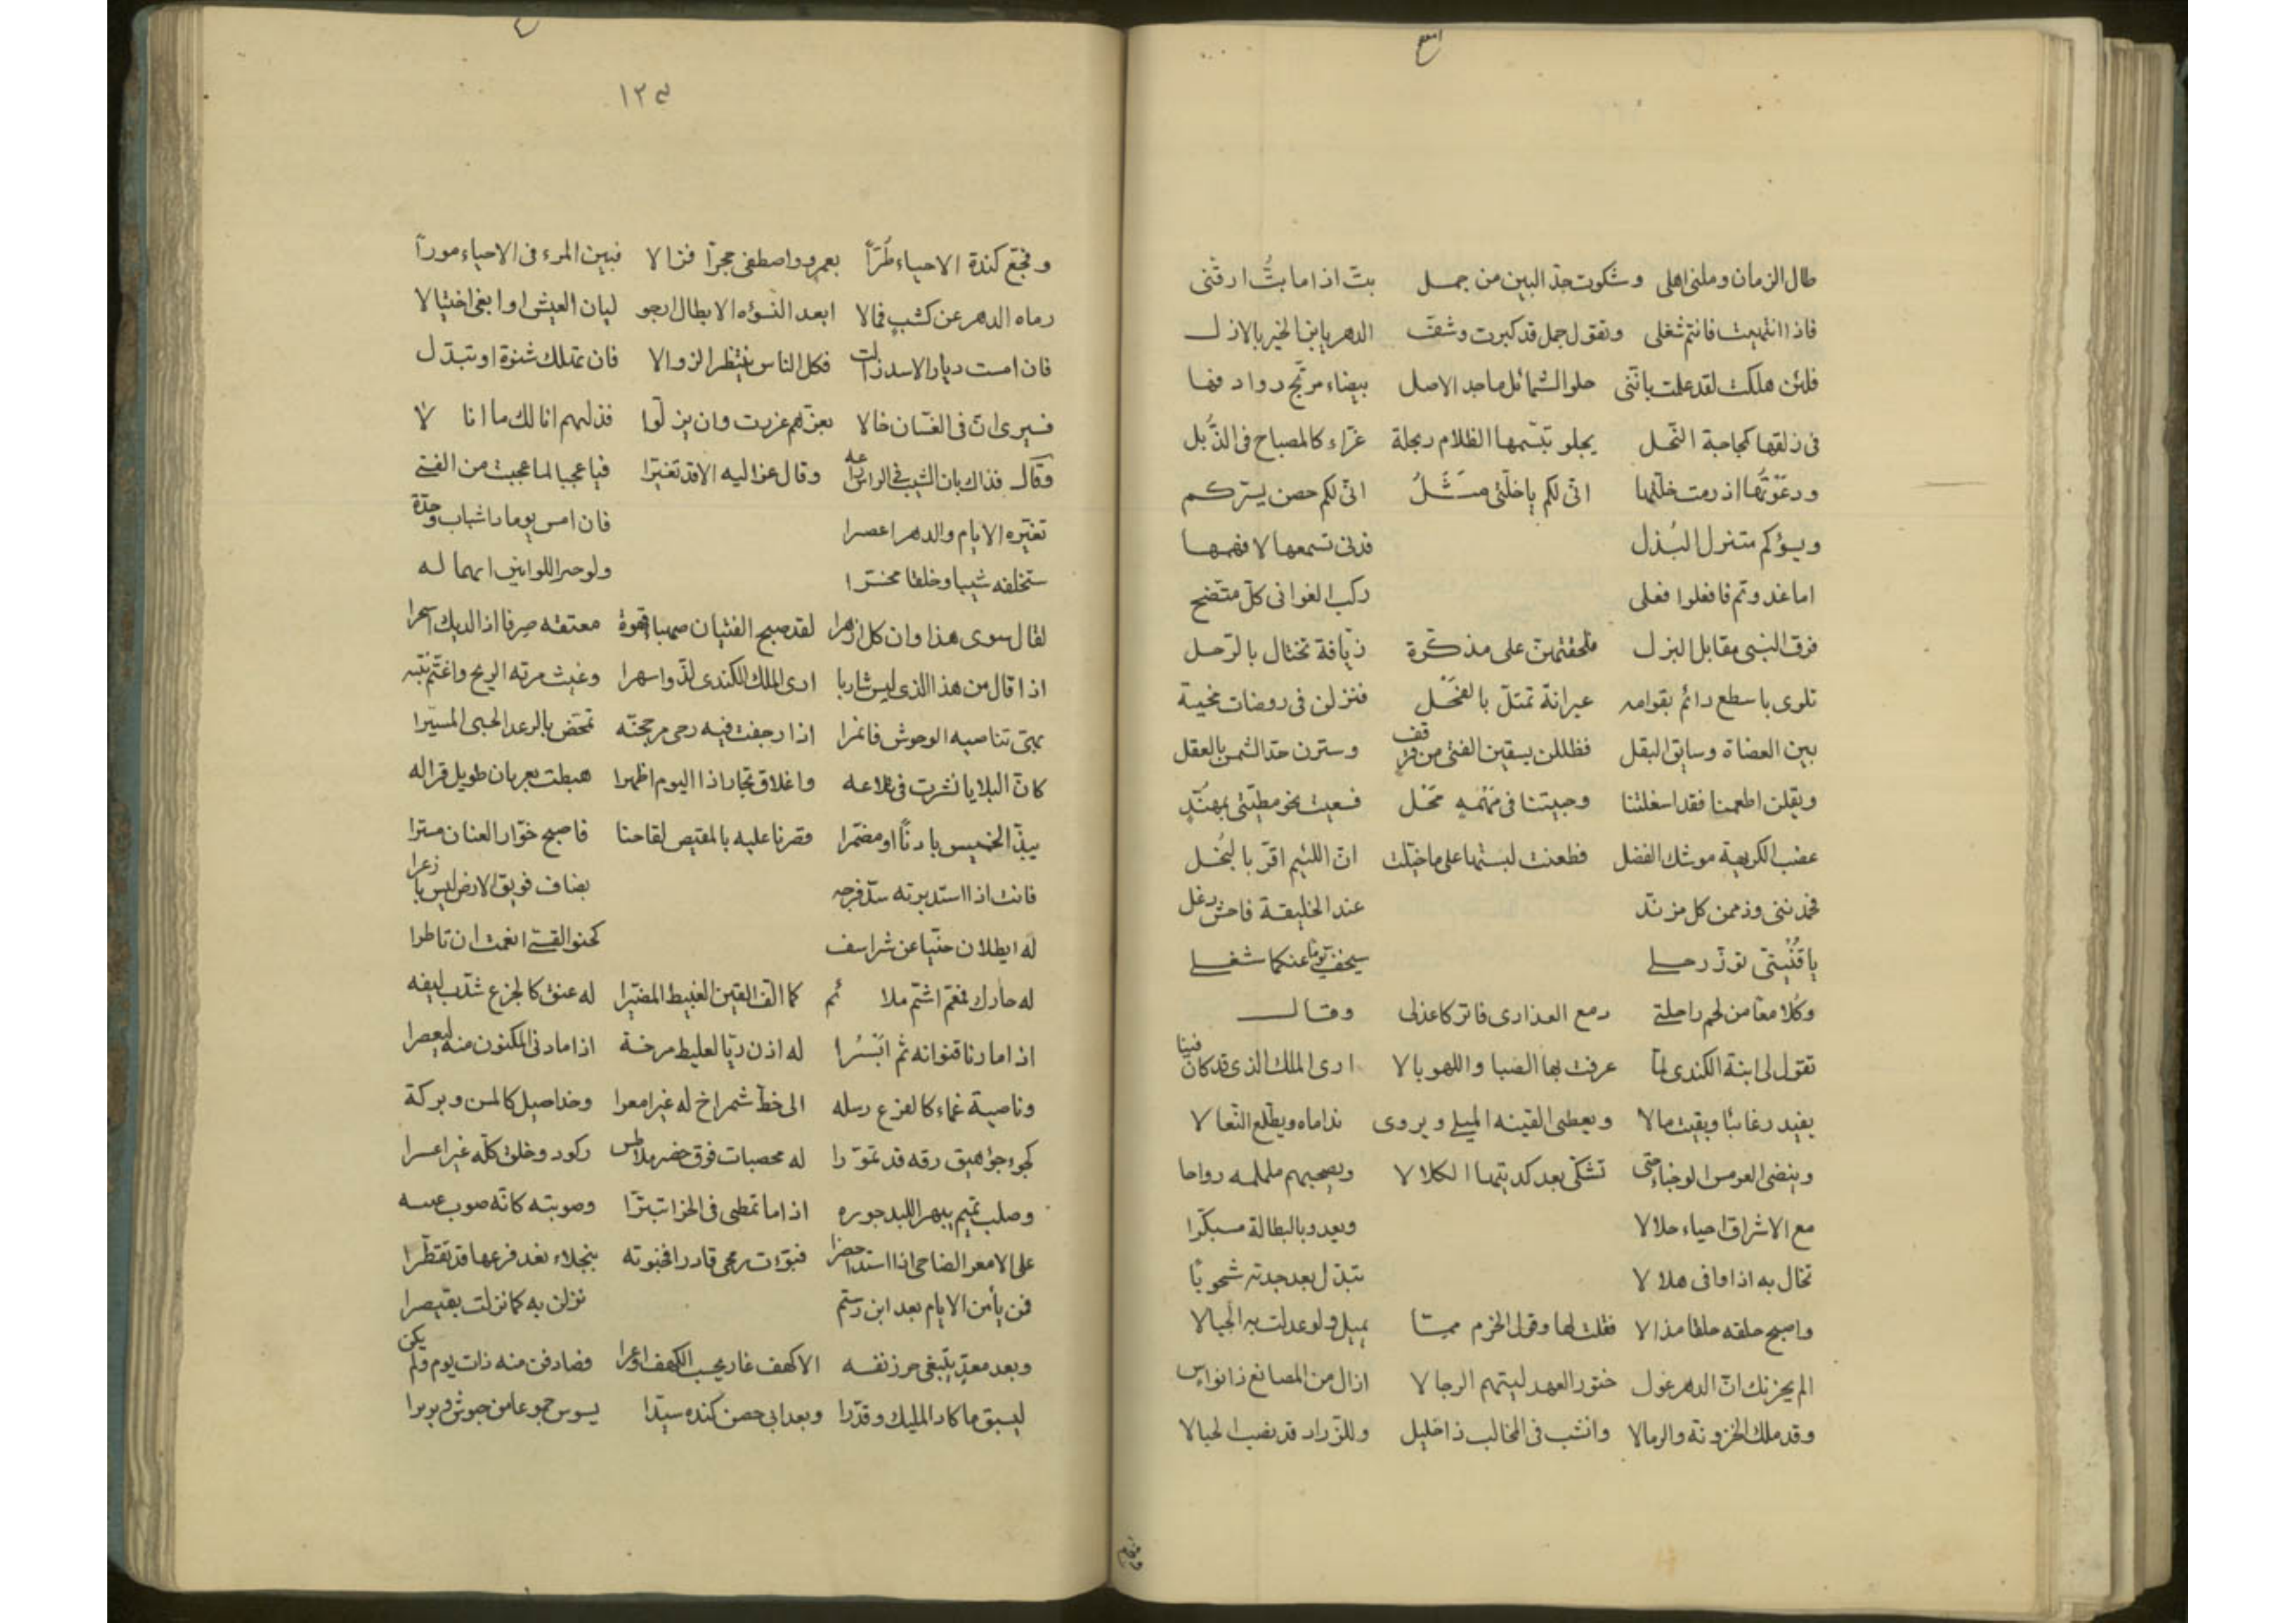 طال الزمان وملنى اهلى وشكوت جدّ البين من جمل بتّ اذا ما بتُّ ارقنى
فاذا انتهيت فانتم شغلى وتقول جمل قد كبرت وشفّ الدهر يا بن الخير بالازل
فلئن هلكت لقد علمت بانّنى حلو الشمائل ماجد الاصل بيضاء مرتجّ روادفها
فى زلقها كجاجة النحل يجلو تبسّمها الظلام ربحلة غرّاء كالمصباح فى الذُّبل
ودعوتها اذ رمت خلّتها انّى لكم يا خلّتى مَثَلُ انّى لكم حصن يسركم
ويسؤكم متنزل البُذل فدنى تسمعها لافهمها
اما غدوتم فافعلوا فعلى ركب الغوانى كلّ متضح
فرق البنسى مقابل البزل فلحقتهنّ على مذكّرة زيّافة تختال بالرّحل
تلوى باسطع دائم بقوامه عيرانة تمتلّ بالفحل فنزلن فى روضات مخية
بين العضاة وسايق البقل فظللن يسقين الفتى من قرقف وسترن حدّ الشمس بالعقل
ويقلن اطعمنا فقد اسغلتنا وجيتنا فى مهمه محل فسعيت نحو مطيّتى بمهنّد
عضب الكريهة موشك الفضل فطعنت لبتها على ماخيّلت انّ اللئيم اقرّ بالبُخل
فحمدننى وذممن كل مزنّد عند الخليقة فاحش دغل
يا قُنيتى نوّر رحلى سيخفّ يوما عنكما شغلى
وكلا معا من لحم راحلتى دمع العذارى فاتركا عذلى وقال
تقول لى ابنة الكندى لمّا عرفت بها الصبا واللهو بالا ارى الملك الذى قد كان فينا
يفيد رغائبا ويفيت مالا ويعطى القينه الميلى ويروى نداماه ويطّلع النّعالا
وينضى العرمس الوجناء حتى تشكّى بعد كدنتها الكلالا ويصحبهم ململمه رواحا
مع الاشراق احياء حلالا ويعدو بالبطالة مسبكّرا
تخال به اذا وافى هلالا تبدّل بعد جدته شحوبا
واصبح حلقه حلقا مذالا فقلت لها وقول الحزم ممتا يميل ولو عدلت به الجبالا
الم يحزنك انّ الدهر غول ختور العهد يلتهم الرجالا ازال من المصانع ذا نواس
وقد ملك الحزونة والرمالا وانشب فى المخالب ذا خليل وللزرّاد قد نصب الحبالا
١٢٥
وفجّع كندة الاحياء طرّاً بعمرو واصطفى حجرا فزالا فبين المرء فى الاحياء مورا
رماه الدهر عن كثب فمالا ابعد النسؤه الابطال ارجو ليان العيش او ابغى اختيالا
فان امست ديار الاسد زالت فكل الناس ينتظر الزوالا فان تملك شنوة او تبدّل
فسيرى انّ فى الغسّان خالا بعزّهم عززت وان يزلّوا فذلهم انا لك ما انا لا
وقال فذاك بان الشيب فى الراس راعه وقال عنزاليه الاقد تغيّرا فيا عجبا لما عجبت من الفتى
تغيّره الايام والدهر اعصرا فان امس يوما دا شباب وجدّة
ستخلفه شيبا وخلقا مخسّرا ولو حر اللوائين ايهما له
لقال سوى هذا وان كل ازهرا لقد صبح الفتيان صهبا قهوة معتقه صرفا اذا الديك اسحرا
اذا قال من هذا الذى ليس شاربا ارى الملك الكندى لذّ واسهرا وغيث مرته الريح واغتمّ نبته
يبتى تناصيه الوحوش فاثمرا اذا رجفت فيه رحى مرجحنّه تمخّض بالرعد الحبى المسيّرا
كانّ البلايا نشرت فى تلاعه واغلاق تجار اذا اليوم اظهرا هبطت بعريان طويل قراله
يبذّ الخميس بادنًا او مضمّرا قصرنا عليه بالمقيص لقاحنا فاصبح خوّار العنان مسترا
فانت اذا استدبرته سدّ فرجه بضاف فويق الارض ليس بازعرا
له ايطلان حنّيا عن شراسف كحنو القسى انعمت ان تاطرا
له حارك مفعم اشتم ملائم كما الّف القين الغبيط المضبّرا له عنق كالجزع شذّب ليفه
اذا ما دنا قنوانه ثم ابسُرا له اذن ربّا لعليط مرخة اذا ما دنى المكنون منه ليعصرا
وناصية غماء كالفزع رسله الى خطّ شمراخ له غير امعرا وخد اصيل كالمسن وبركة
كجوء جؤ هيق رقه قد تموّرا له محصبات فوق خضر ملاطس ركود وخلق كلّه غير اعسرا
وصلب تميم يبهر اللبد جوره اذا ما تمطى فى الحزات بتّرا وصوبته كانّه صوب عبسه
على الامعر الضاحى اذا استد احضرا فبتوءات رمحى قادرا فحبوته بنجلاء بغد فرعها قد تقطّرا
فمن يأمن الايام بعد ابن رستم نزلن به كما نزلت بقيصرا
وبعد معدّ يبتغى حرز نفسه الا كهف غار يحسب الكهف اوعرا فصادفن منه ذات يوم ولم يكن
ليسبق ما كاد المليك وقدّرا وبعد ابى حصن كنده سيّدا يسوس جموعا من جيوش وبربرا